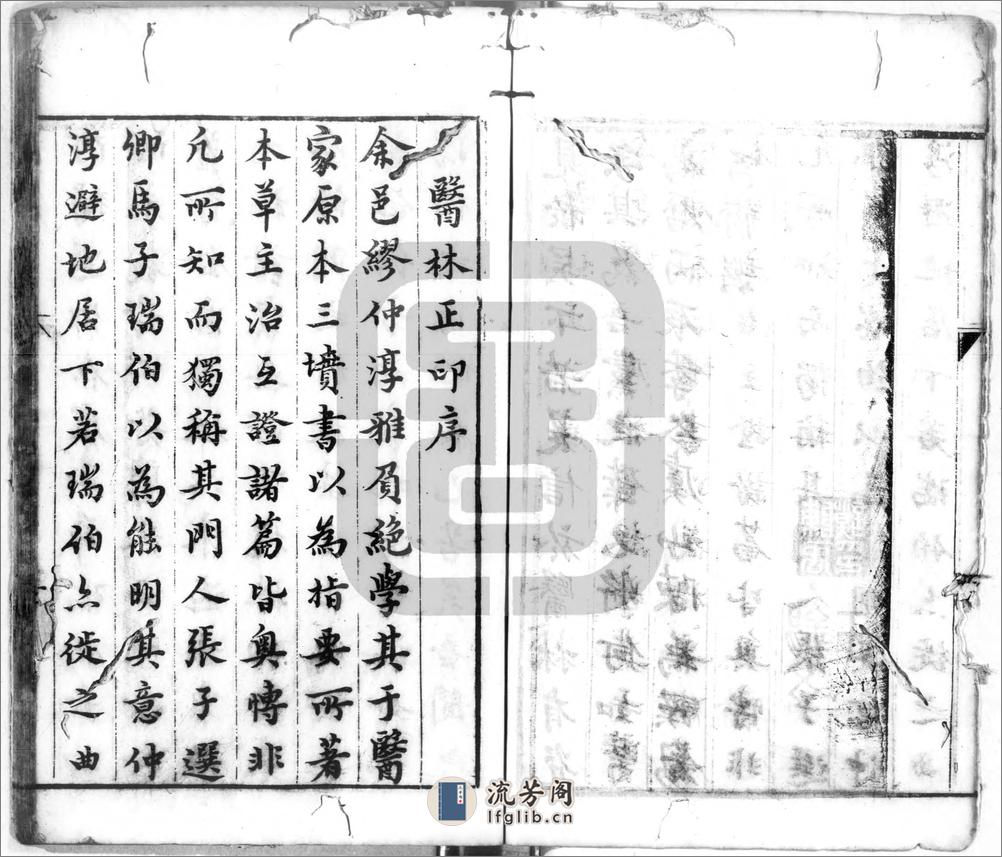 醫林正印序
余邑繆仲淳雅負絕學其于醫
家原本三墳書以為指要所著
本草主治互證諸篇皆奧博非
凡所知而獨稱其門人張子選
卿馬子瑞伯以為能明其意仲
淳避地居下若瑞伯亦徙之曲
流芳阁
lfglib.cn